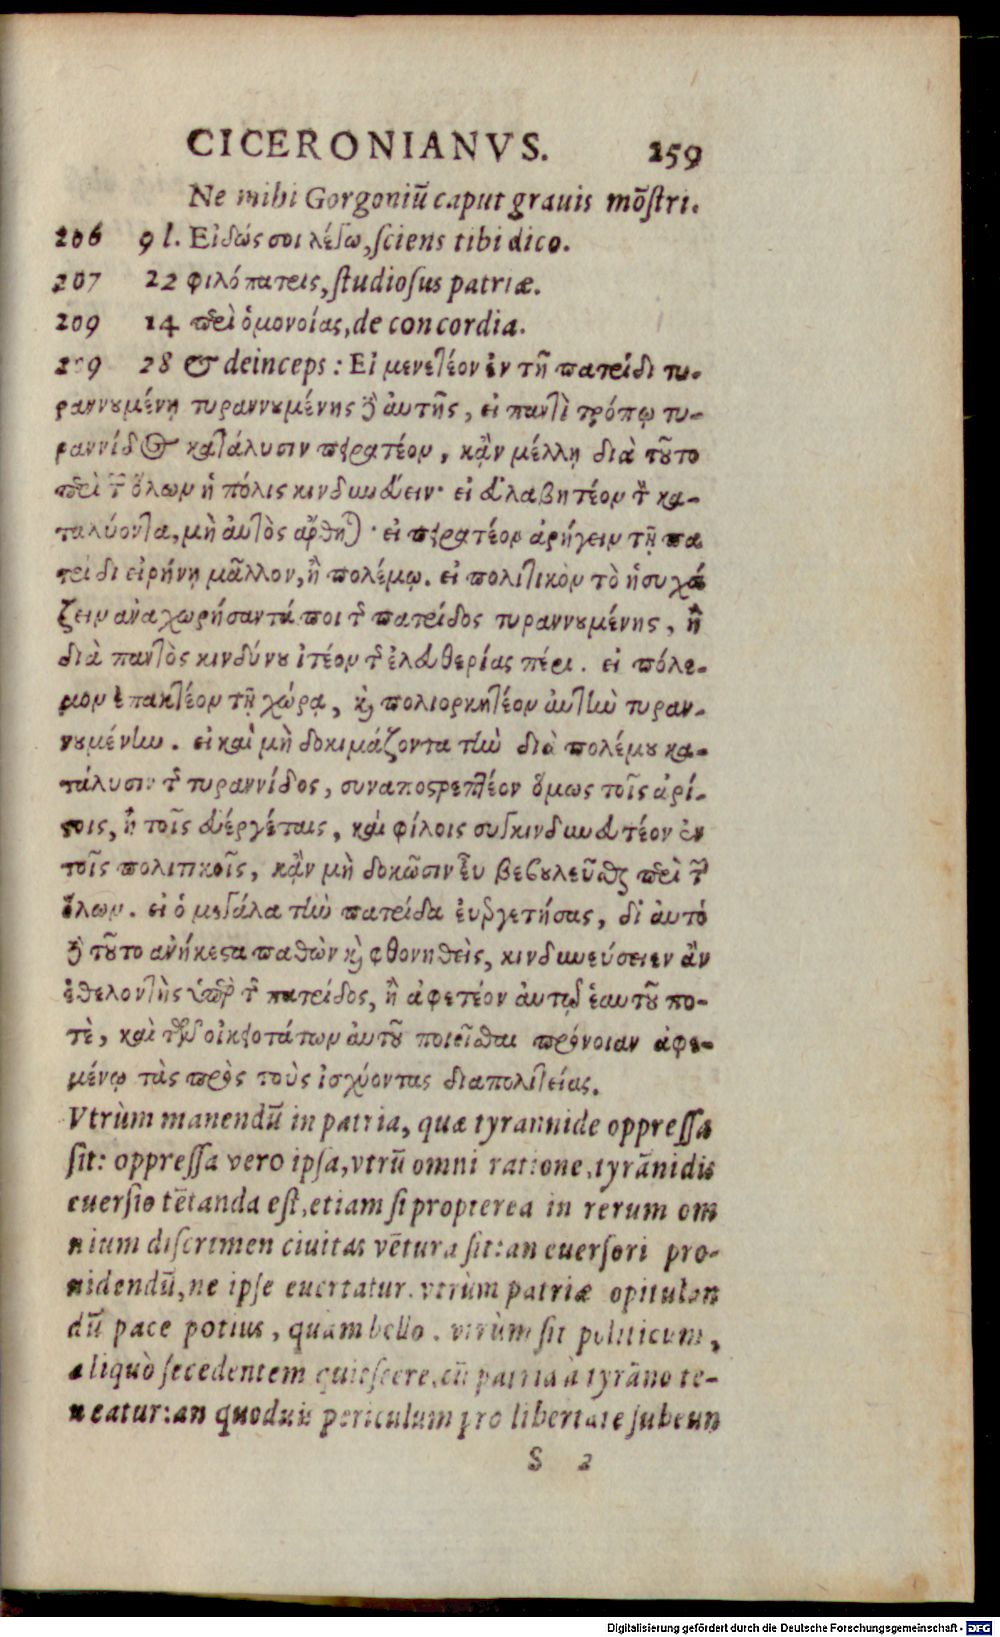 CICERONIANVS. 259
Ne mihi Gorgoniũ caput grauis mõstri.
206 9 l. Εἰδώς σοι λέγω, sciens tibi dico.
207 22 φιλόπατρις, studiosus patriæ.
209 14 περὶ ὁμονοίας, de concordia.
209 28 & deinceps: Εἰ μενετέον ἐν τῇ πατρίδι τυ-
ραννουμένῃ τυραννουμένης δ' αὐτῆς, εἰ παντὶ τρόπῳ τυ-
ραννίδος κατάλυσιν πειρατέον, κᾂν μέλλῃ διὰ τοῦτο
περὶ τῶν ὅλων ἡ πόλις κινδυνεύειν· εἰ εὐλαβητέον τὸν κα-
ταλύοντα, μὴ αὐτὸς αἴρηται· εἰ πειρατέον ἀρήγειν τῇ πα
τρίδι εἰρήνῃ μᾶλλον, ἢ πολέμῳ. εἰ πολιτικὸν τὸ ἡσυχά
ζειν ἀναχωρήσαντά ποι τῆς πατρίδος τυραννουμένης, ἢ
διὰ παντὸς κινδύνου ἰτέον τῆς ἐλευθερίας πέρι. εἰ πόλε-
μον ἐπακτέον τῇ χώρᾳ, καὶ πολιορκητέον αὐτὴν τυραν-
νουμένην. εἰ καὶ μὴ δοκιμάζοντα τὴν διὰ πολέμου κα-
τάλυσιν τῆς τυραννίδος, συναπογραπτέον ὅμως τοῖς ἀρί-
στοις, ἢ τοῖς εὐέργέταις, καὶ φίλοις συγκινδυνευτέον ἐν
τοῖς πολιτικοῖς, κᾂν μὴ δοκῶσιν εὖ βεβουλεῦσθαι περὶ τῶν
ὅλων. εἰ ὁ μεγάλα τὴν πατρίδα εὐεργετήσας, δι' αὐτό
δὲ τοῦτο ἀνήκεστα παθὼν καὶ φθονηθεὶς, κινδυνεύσειεν ἂν
ἐθελοντὴς ὑπὲρ τῆς πατρίδος, ἢ ἀφετέον αὐτῷ ἑαυτοῦ πο-
τὲ, καὶ τῶν οἰκειοτάτων αὐτοῦ ποιεῖσθαι πρόνοιαν ἀφε-
μένῳ τὰς πρὸς τοὺς ἰσχύοντας διαπολιτείας.
Vtrùm manendũ in patria, quæ tyrannide oppressa
sit: oppressa vero ipsa, vtrũ omni ratione, tyrãnidis
euersio tẽtanda est, etiam si propterea in rerum om
nium discrimen ciuitas vẽtura sit: an euersori pro-
uidendũ, ne ipse euertatur. vtrùm patriæ opitulan
dũ pace potius, quam bello. vtrùm sit politicum,
aliquò secedentem quiescere, cũ patria à tyrãno te-
neatur: an quoduis periculum pro libertate subeun
S 2
Digitalisierung gefördert durch die Deutsche Forschungsgemeinschaft - DFG